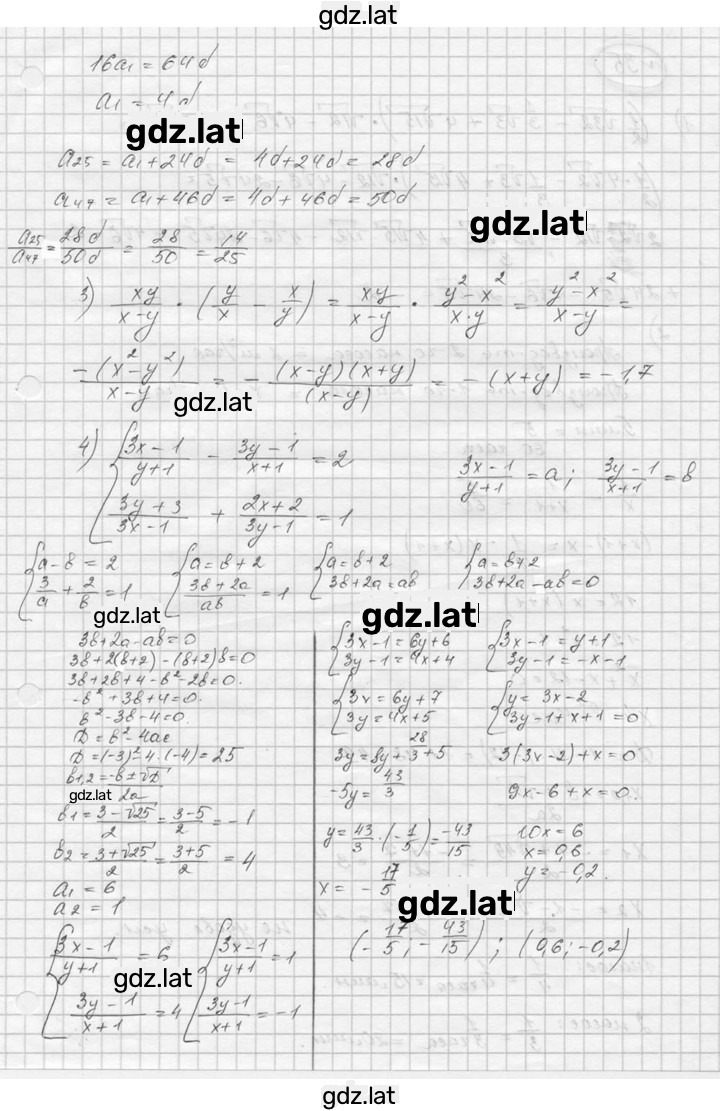 gdz.lat
16a₁ = 64d
a₁ = 4d
gdz.lat
a₂₅ = a₁ + 24d = 4d + 24d = 28d
a₄₇ = a₁ + 46d = 4d + 46d = 50d
gdz.lat
a₂₅/a₄₇ = 28d/50d = 28/50 = 14/25
3) xy/(x-y) · (y/x - x/y) = xy/(x-y) · (y²-x²)/(x·y) = (y²-x²)/(x-y) =
-(x²-y²)/(x-y) = - (x-y)(x+y)/(x-y) = -(x+y) = -1,7
gdz.lat
4) { (3x-1)/(y+1) - (3y-1)/(x+1) = 2
(3y+3)/(3x-1) + (2x+2)/(3y-1) = 1
(3x-1)/(y+1) = a; (3y-1)/(x+1) = в
{ a-в = 2
3/a + 2/в = 1
{ a = в+2
(3в+2a)/(aв) = 1
{ a = в+2
3в+2a = aв
{ a = в+2
3в+2a-aв = 0
gdz.lat
gdz.lat
3в+2a-aв = 0
3в+2(в+2)-(в+2)в = 0
3в+2в+4-в²-2в = 0.
-в²+3в+4 = 0.
в²-3в-4 = 0.
D = в²-4ac
D = (-3)²-4·(-4) = 25
в₁,₂ = (-в±√D)/2a
gdz.lat
в₁ = (3-√25)/2 = (3-5)/2 = -1
в₂ = (3+√25)/2 = (3+5)/2 = 4
a₁ = 6
a₂ = 1
{ (3x-1)/(y+1) = 6
(3y-1)/(x+1) = 4
{ (3x-1)/(y+1) = 1
(3y-1)/(x+1) = -1
gdz.lat
{ 3x-1 = 6y+6
3y-1 = 4x+4
{ 3x = 6y+7
3y = 4x+5
3y = 8y + 28/3 + 5
-5y = 43/3
y = 43/3 · (-1/5) = -43/15
x = -17/5
{ 3x-1 = y+1
3y-1 = -x-1
{ y = 3x-2
3y-1+x+1 = 0
3(3x-2)+x = 0
9x-6+x = 0.
10x = 6
x = 0,6.
y = -0,2.
gdz.lat
(-17/5; -43/15); (0,6; -0,2)
gdz.lat